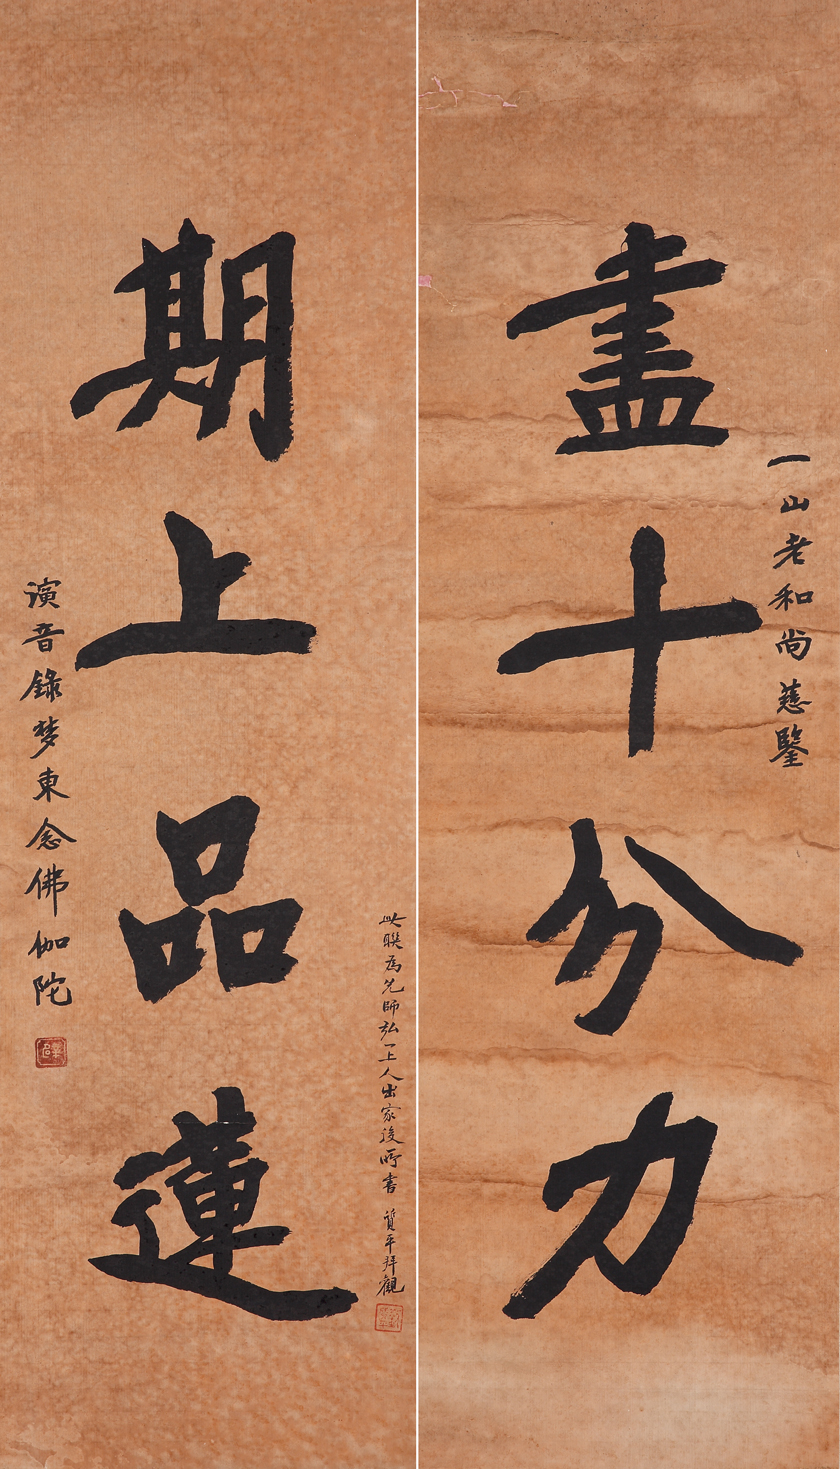 一山老和尚慈鑒
盡十分力
期上品蓮
演音錄梦東念佛伽陀
此聯爲先師弘一上人出家後所書 質平拜觀